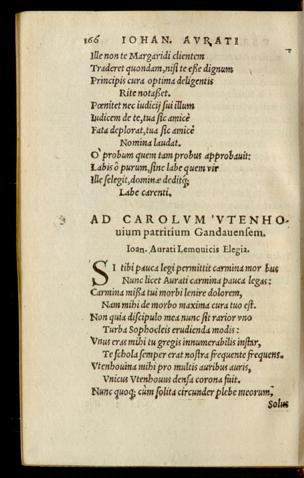 166 IOHAN. AVRATI
Ille non te Margaridi clientem
Traderet quondam, nisi te eße dignum
Principis cura optima deligentis
Rite notaßet.
Pœnitet nec iudicij sui illum
Iudicem de te, tua sic amicè
Fata deplorat, tua sic amicè
Nomina laudat.
O probum quem tam probus approbauit:
Labis ô purum, sine labe quem vir
Ille selegit, dominæ deditq;
Labe carenti.
AD CAROLVM VTENHO-
uium patritium Gandauensem.
Ioan. Aurati Lemouicis Elegia.
SI tibi pauca legi permittit carmina morbus
Nunc licet Aurati carmina pauca legas:
Carmina mißa tui morbi lenire dolorem,
Nam mihi de morbo maxima cura tuo est.
Non quia discipulo mea nunc sit rarior vno
Turba Sophocleis erudienda modis:
Vnus eras mihi tu gregis innumerabilis instar,
Te schola semper erat nostra frequente frequens.
Vtenhouina mihi pro multis auribus auris,
Vnicus Vtenhouus densa corona fuit.
Nunc quoq; cùm solita circunder plebe meorum,
Solus